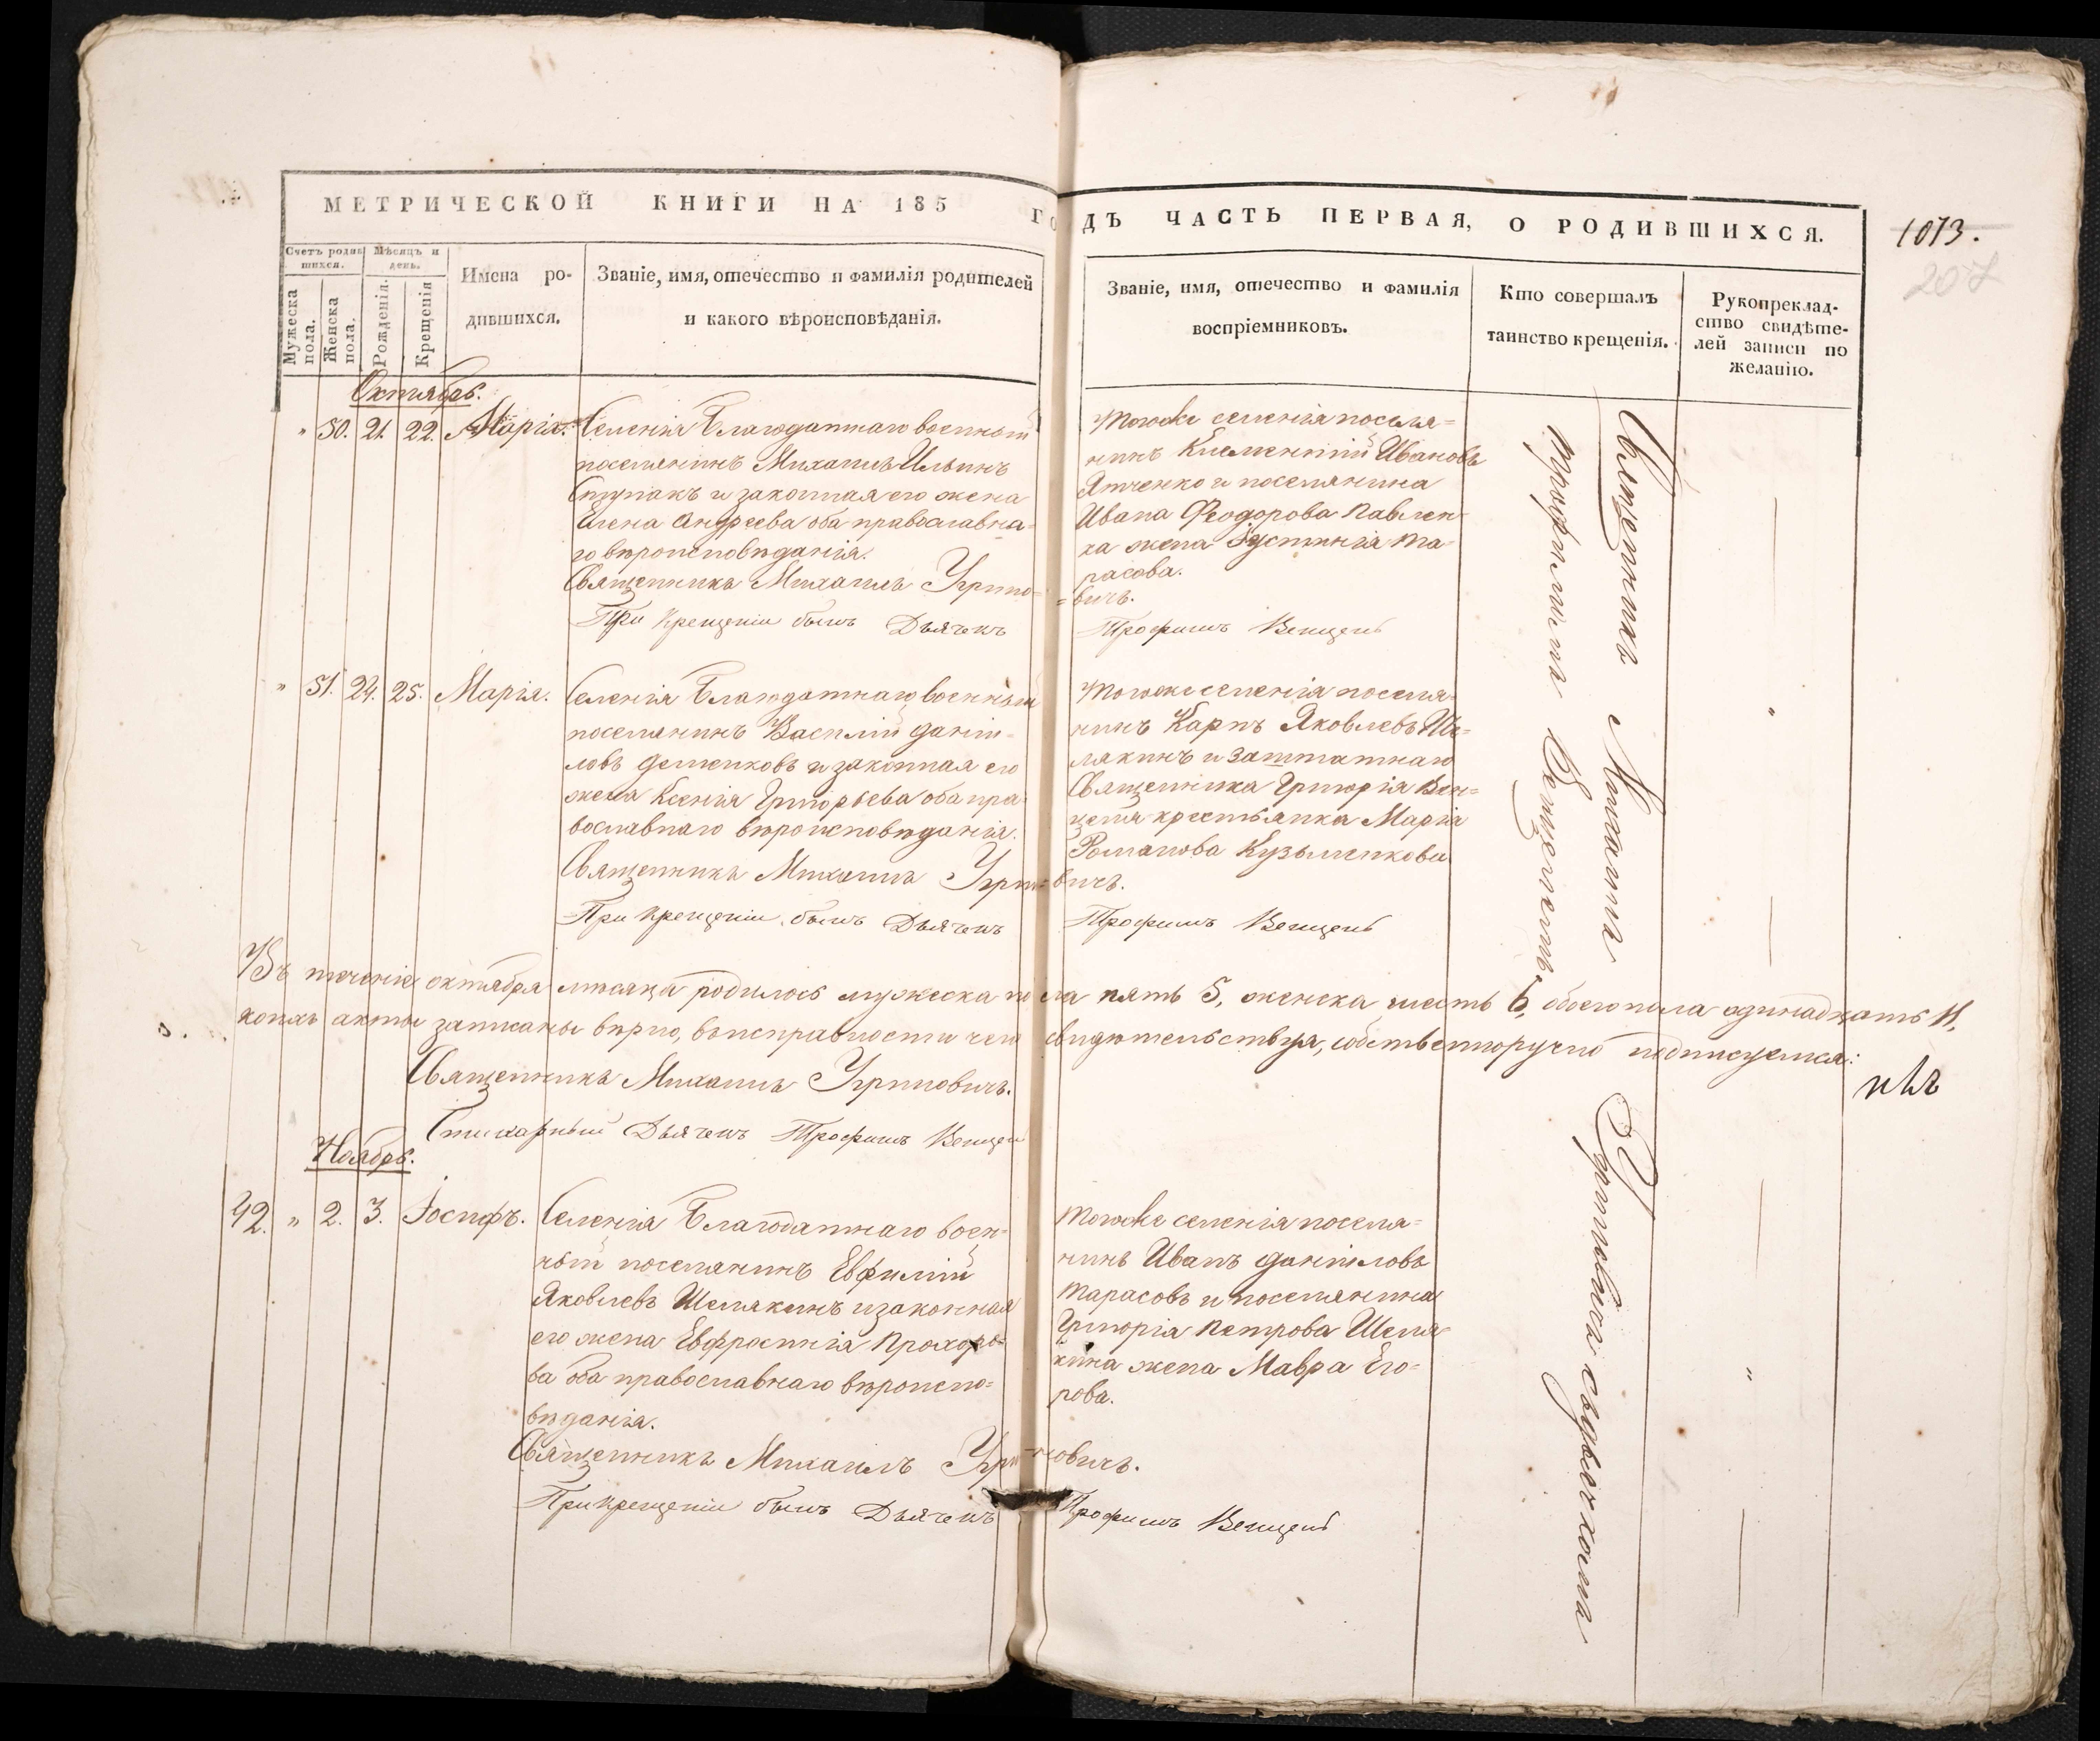 МЕТРИЧЕСКОЙ КНИГИ НА 185 ГОДЪ ЧАСТЬ ПЕРВАЯ, О РОДИВШИХСЯ.
1013.
207
Счетъ родив
шихся.
Мѣсяцъ и
день.
Мужеска
пола.
Женска
пола.
Рожденія.
Крещенія
Имена ро-
дившихся.
Званіе, имя, отечество и фамилія родителей
и какого вѣроисповѣданія.
Званіе, имя, отечество и фамилія
воспріемниковъ.
Кто совершалъ
таинство крещенія.
Рукопреклад-
ство свидѣте-
лей записи по
желанію.
Октябрь.
" 50. 21. 22. Марія.
Селенія Благодатнаго военный
поселянинъ Михаилъ Ильинъ
Ступакъ и законная его жена
Елена Андреева оба православна-
го вѣроисповѣданія.
Священникъ Михаилъ Угрино-
При крещеніи былъ Дьячекъ
тогоже селенія поселя=
нинъ Климентій Ивановъ
Ятченко и поселянина
Ивана Феодорова Павлен
ка жена Іустинія Та-
расова.
=вичъ.
Трофимъ Венцель
" 51. 24. 25. Марія.
Селенія Благодатнаго военный
поселянинъ Василій Даніи-
ловъ Деменковъ и законная его
жена Ксенія Григорьева оба пра
вославнаго вѣроисповѣданія.
Священникъ Михаилъ Угрино=
При крещеніи былъ Дьячекъ
тогоже селенія поселя-
нинъ Карпъ Яковлевъ Ше=
лякинъ и заштатнаго
Священника Григорія Вен=
целя крестьянка Марія
Романова Кузьменкова
вичъ.
Трофимъ Венцель
Священникъ Михаилъ
Трофимомъ Венцелемъ
Въ теченіе октября мѣсяца родилось мужеска пола пять 5, женска шесть 6, обоего пола одинадцать 11,
коихъ акты записаны вѣрно, въ исправности чего свидѣтельствуя, собственноручно подписуемся:
Священникъ Михаилъ Угриновичъ.
Стихарный Дьячекъ Трофимъ Венцель
Ноябрь.
42. " 2. 3. Іосифъ.
Селенія Благодатнаго воен-
ный поселянинъ Евфимій
Яковлевъ Шелякинъ и законная
его жена Евфросинія Прохоро-
ва оба православнаго вѣроиспо=
вѣданія.
Священникъ Михаилъ Угри
При крещеніи былъ Дьячекъ
тогоже селенія поселя=
нинъ Иванъ Даніиловъ
Тарасовъ и поселянина
Григорія Петрова Шеля
кина жена Мавра Его=
рова.
новичъ.
Трофимъ Венцель
Угриновичъ съ дьячкомъ